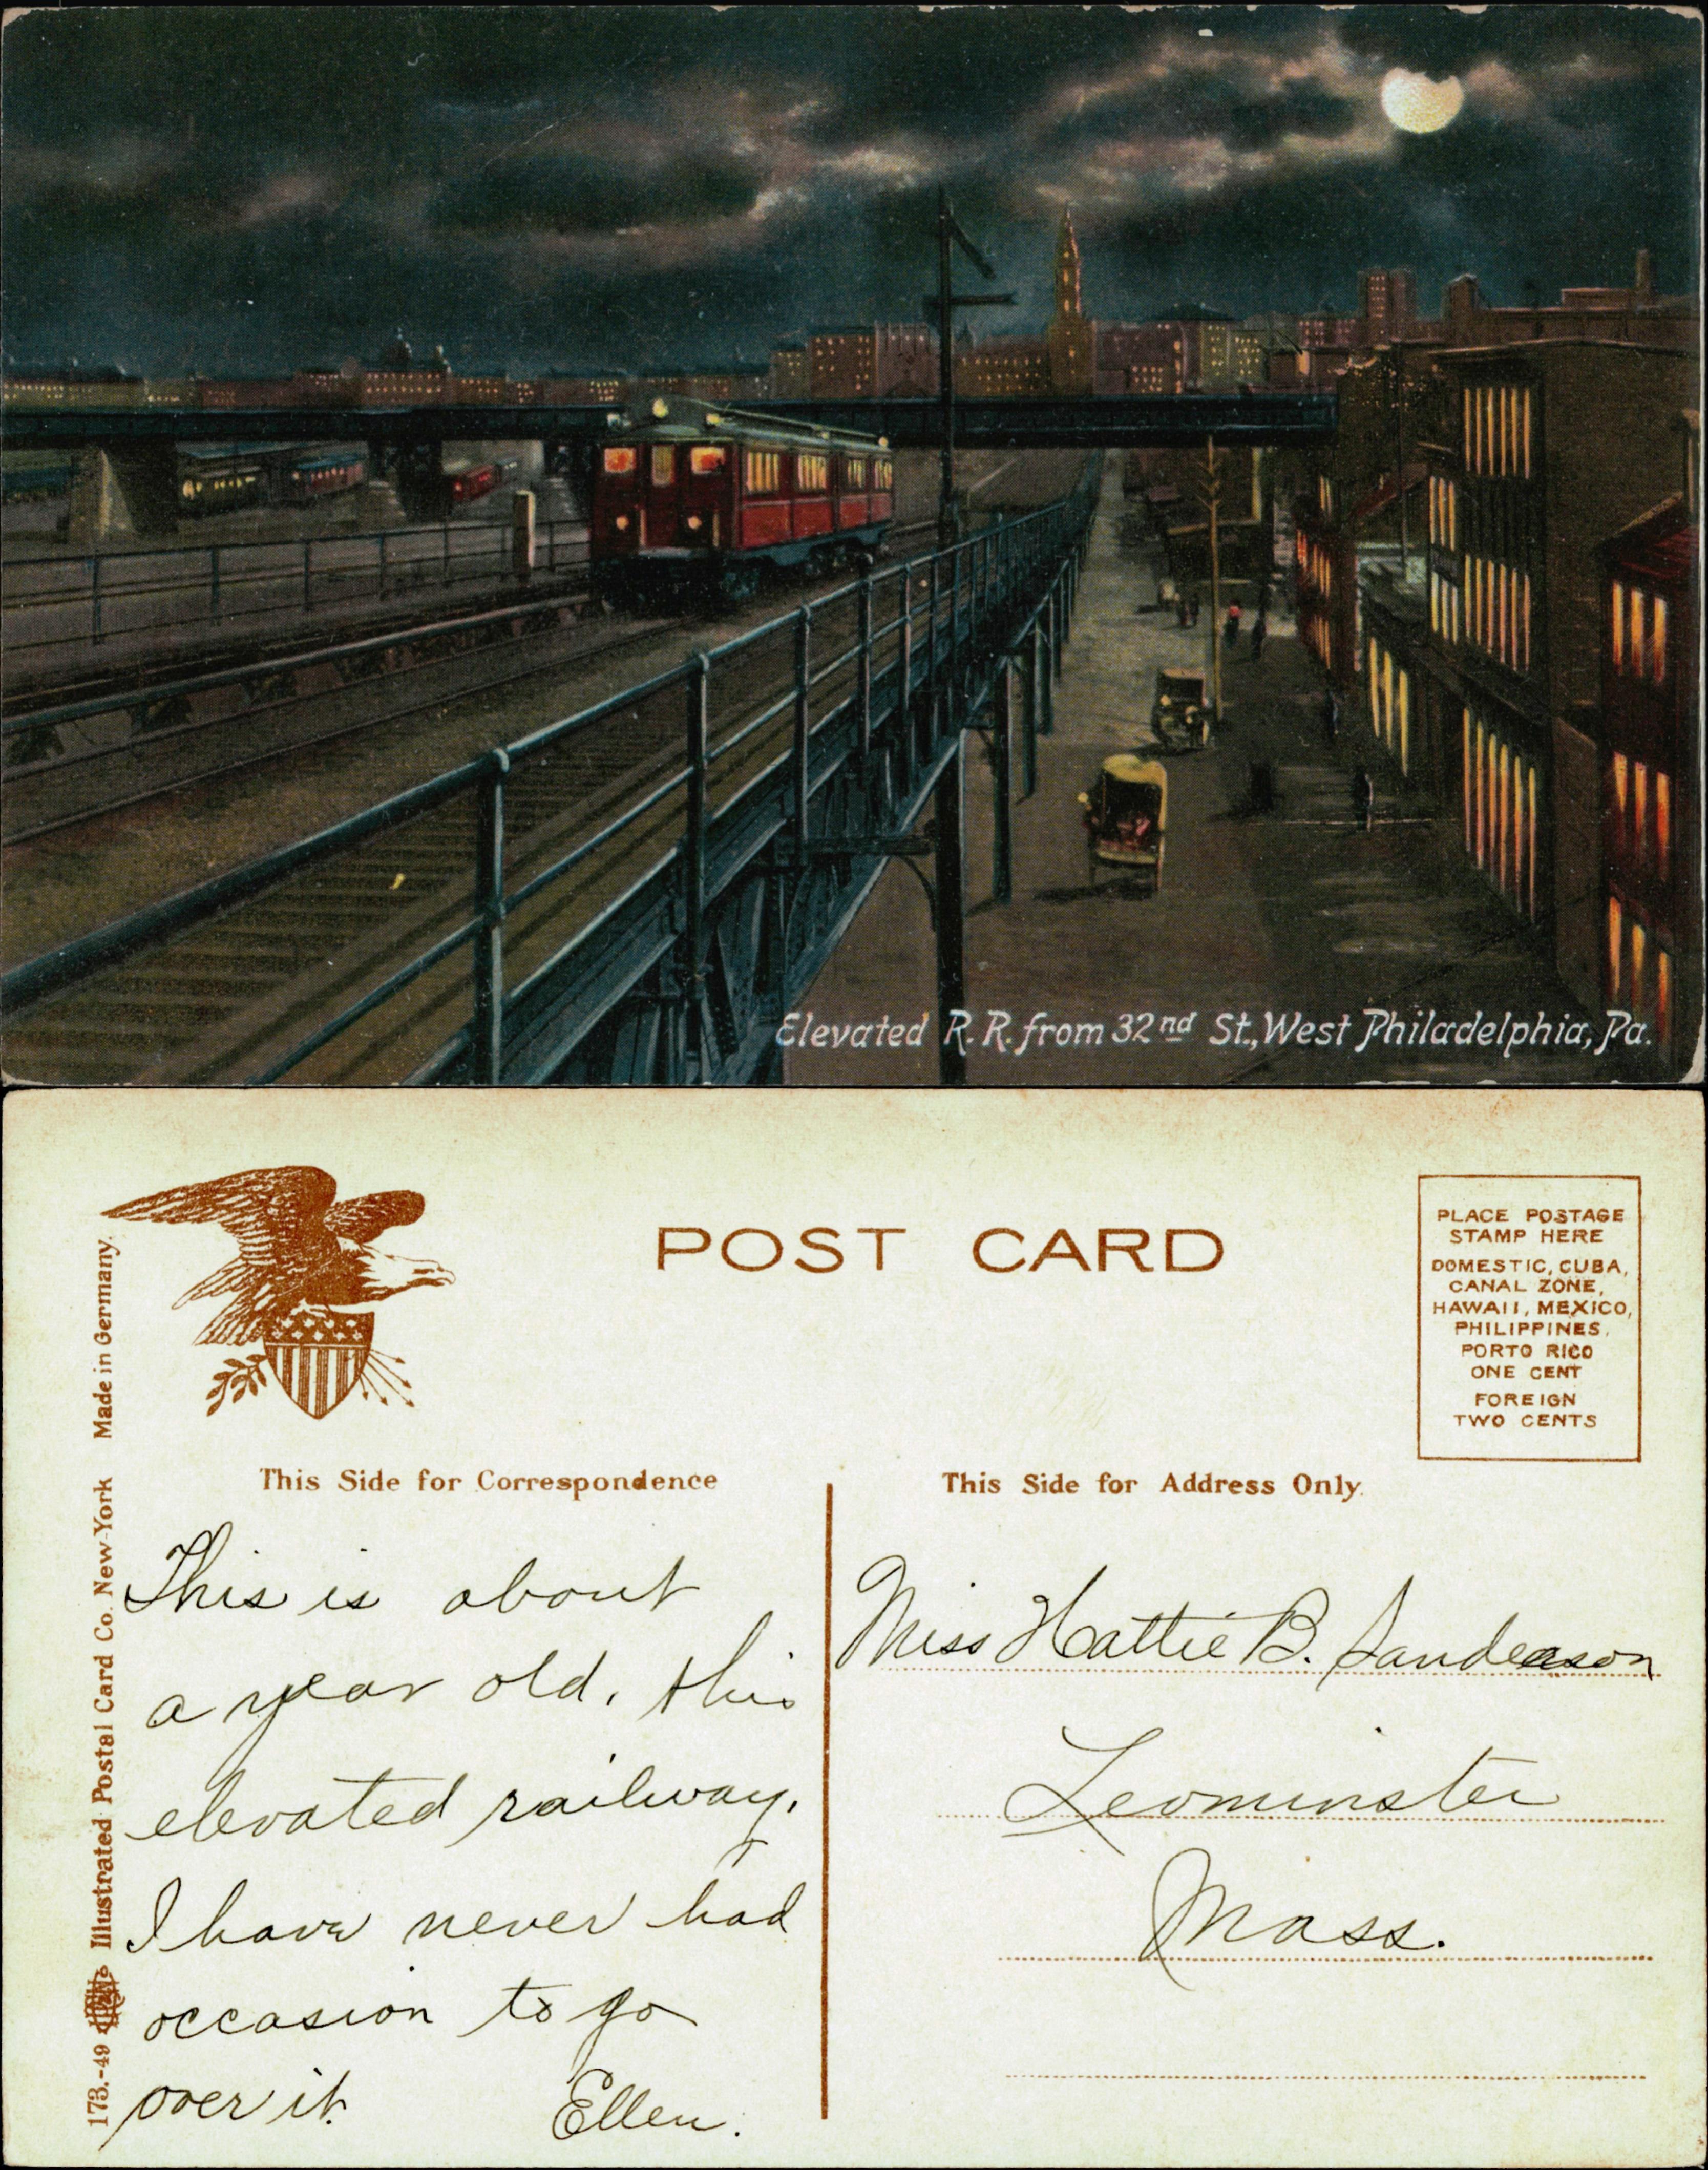 Elevated R. R. from 32nd St., West Philadelphia, Pa.
POST CARD
PLACE POSTAGE
STAMP HERE
DOMESTIC, CUBA,
CANAL ZONE,
HAWAII, MEXICO,
PHILIPPINES,
PORTO RICO
ONE CENT
FOREIGN
TWO CENTS
173.-49 Illustrated Postal Card Co. New-York Made in Germany.
This Side for Correspondence
This is about
a year old, this
elevated railway.
I have never had
occasion to go
over it.
Ellen.
This Side for Address Only.
Miss Hattie B. Sanderson
Leominster
Mass.